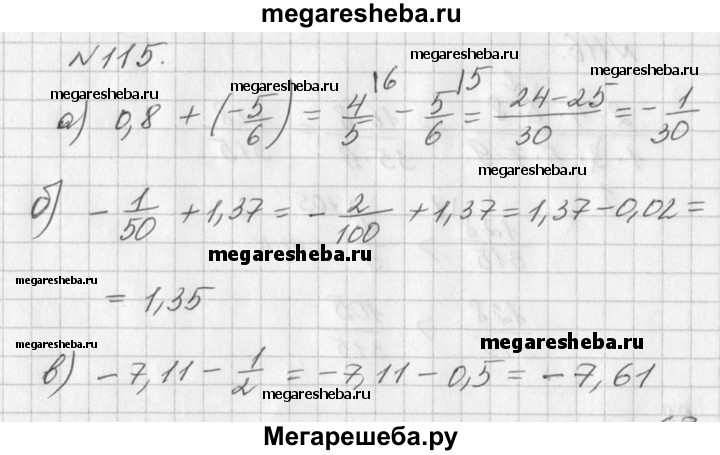 megaresheba.ru
№115.
megaresheba.ru megaresheba.ru megaresheba.ru
а) 0,8 + (-5/6) = 4/5 |6 - 5/6 |5 = 24-25/30 = -1/30
megaresheba.ru megaresheba.ru
б) -1/50 + 1,37 = -2/100 + 1,37 = 1,37 - 0,02 =
megaresheba.ru
megaresheba.ru
= 1,35
megaresheba.ru megaresheba.ru
в) -7,11 - 1/2 = -7,11 - 0,5 = -7,61
megaresheba.ru
Мегарешеба.ру